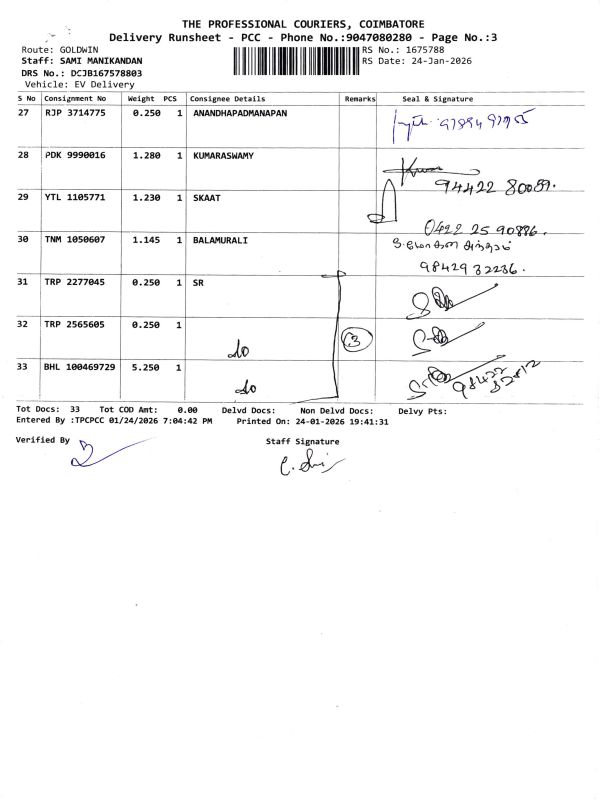 THE PROFESSIONAL COURIERS, COIMBATORE
Delivery Runsheet - PCC - Phone No.:9047080280 - Page No.:3
Route: GOLDWIN
RS No.: 1675788
Staff: SAMI MANIKANDAN
RS Date: 24-Jan-2026
DRS No.: DCJB167578803
Vehicle: EV Delivery
S No Consignment No Weight PCS Consignee Details Remarks Seal & Signature
27 RJP 3714775 0.250 1 ANANDHAPADMANAPAN
28 PDK 9990016 1.280 1 KUMARASWAMY
94422 80089.
29 YTL 1105771 1.230 1 SKAAT
0422 25 90886.
30 TNM 1050607 1.145 1 BALAMURALI
98429 32236.
31 TRP 2277045 0.250 1 SR
32 TRP 2565605 0.250 1
do 3
33 BHL 100469729 5.250 1
do 98422 82812
Tot Docs: 33 Tot COD Amt: 0.00 Delvd Docs: Non Delvd Docs: Delvy Pts:
Entered By :TPCPCC 01/24/2026 7:04:42 PM Printed On: 24-01-2026 19:41:31
Verified By Staff Signature